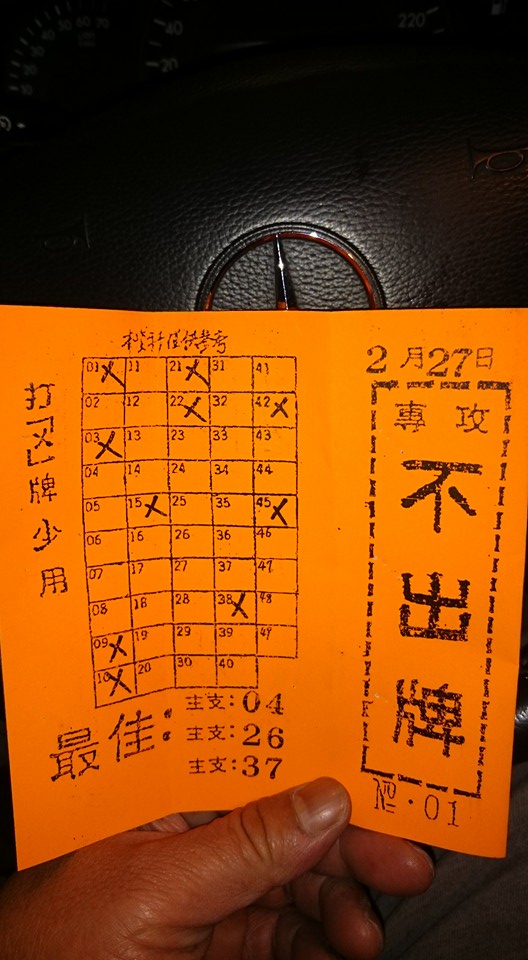 2月27日
專攻
不出牌
No.01
本資料僅供參考
打「X」牌少用
01 11 21 31 41
02 12 22 32 42
03 13 23 33 43
04 14 24 34 44
05 15 25 35 45
06 16 26 36 46
07 17 27 37 47
08 18 28 38 48
09 19 29 39 49
10 20 30 40
最佳:
主支:04
主支:26
主支:37
220
40
20